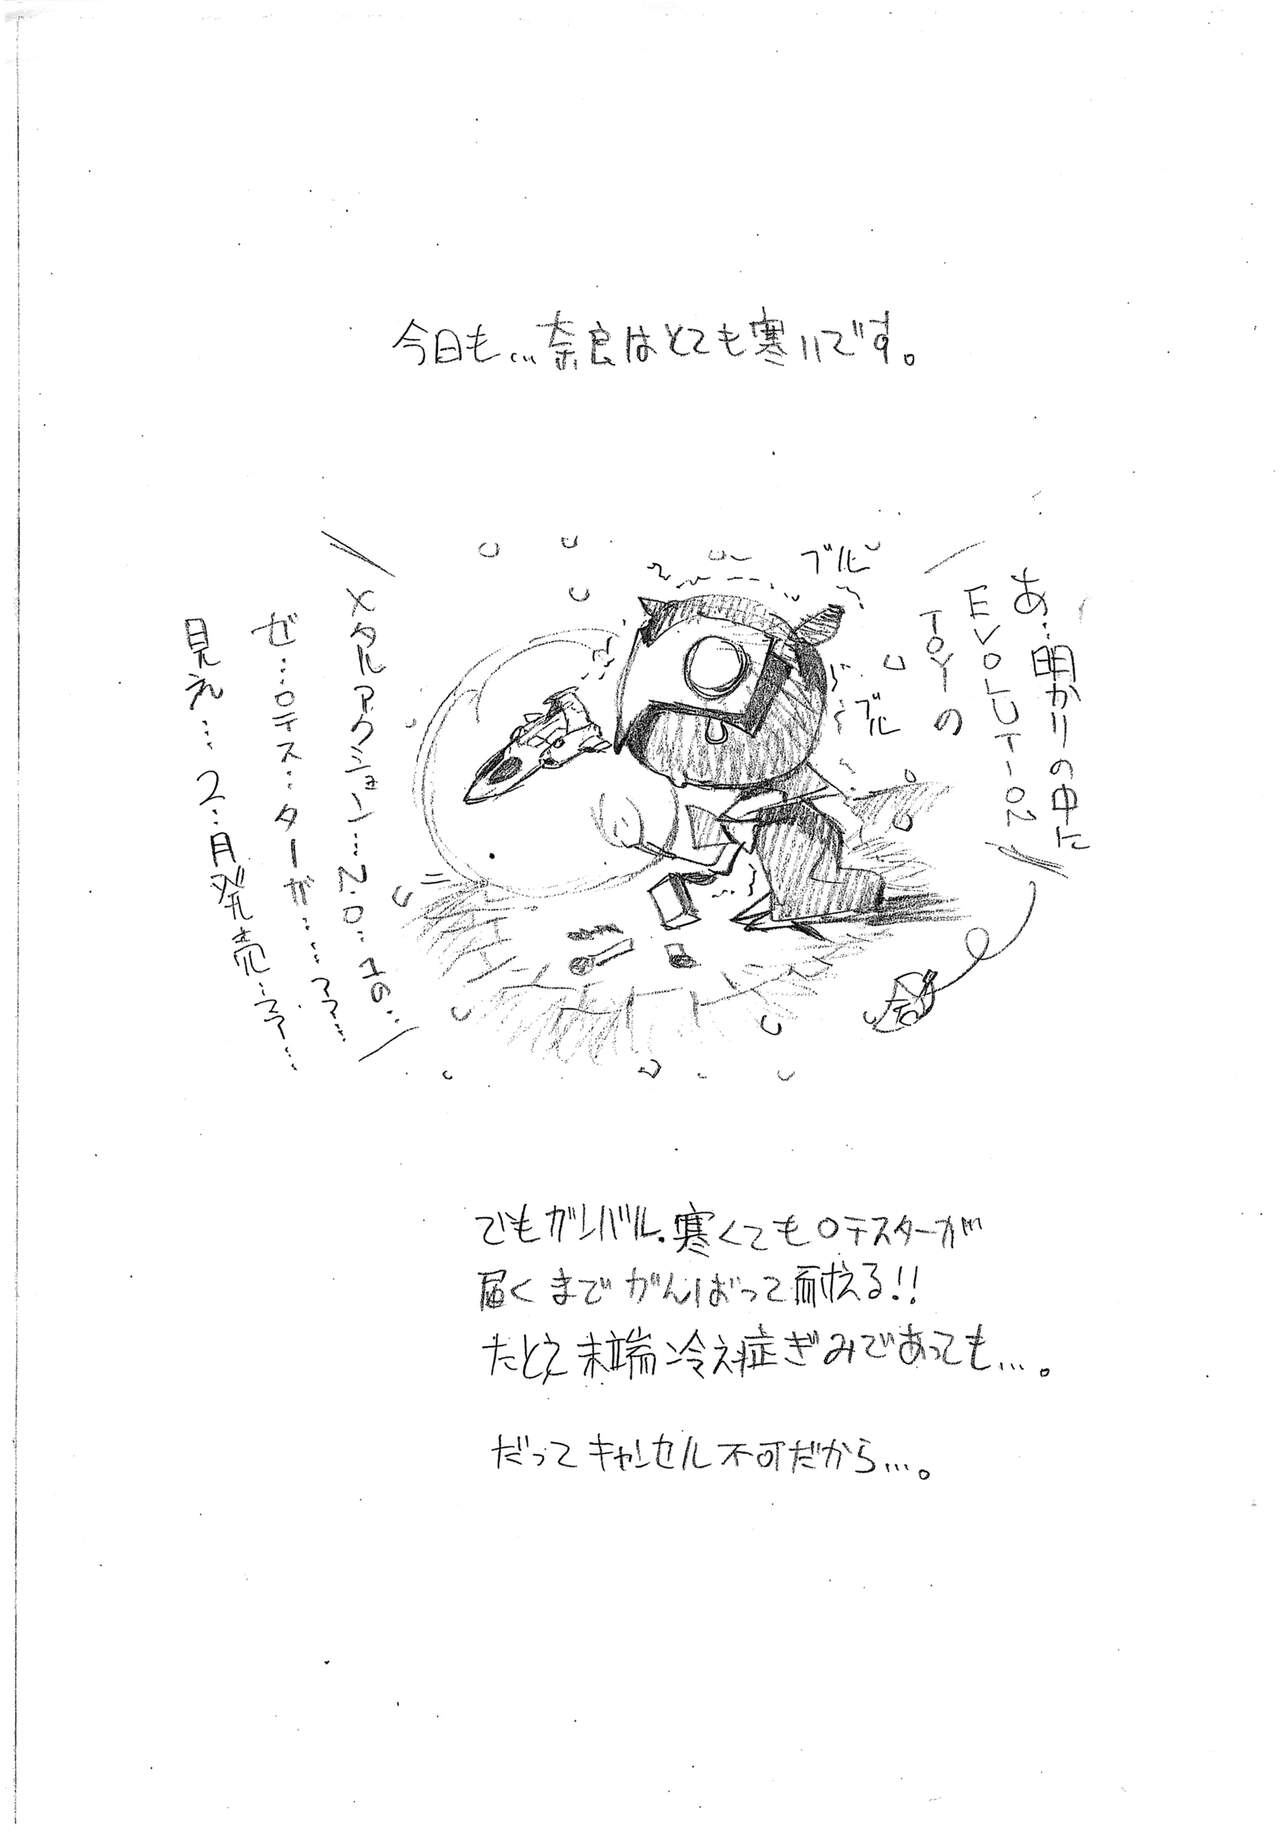 今日も…奈良はとても寒いです。
ブルビ
ブル
あ…明かりの中に
EVOLUTION
TOYの
メタルアクション…No…1の…
ゼ…ロテス…ターが……ァァ…
見え…2…月発売…ァァ…
でもガンバル.寒くても0テスターが
届くまでがんばって耐える!!
たとえ末端冷え症ぎみであっても…。
だってキャンセル不可だから…。